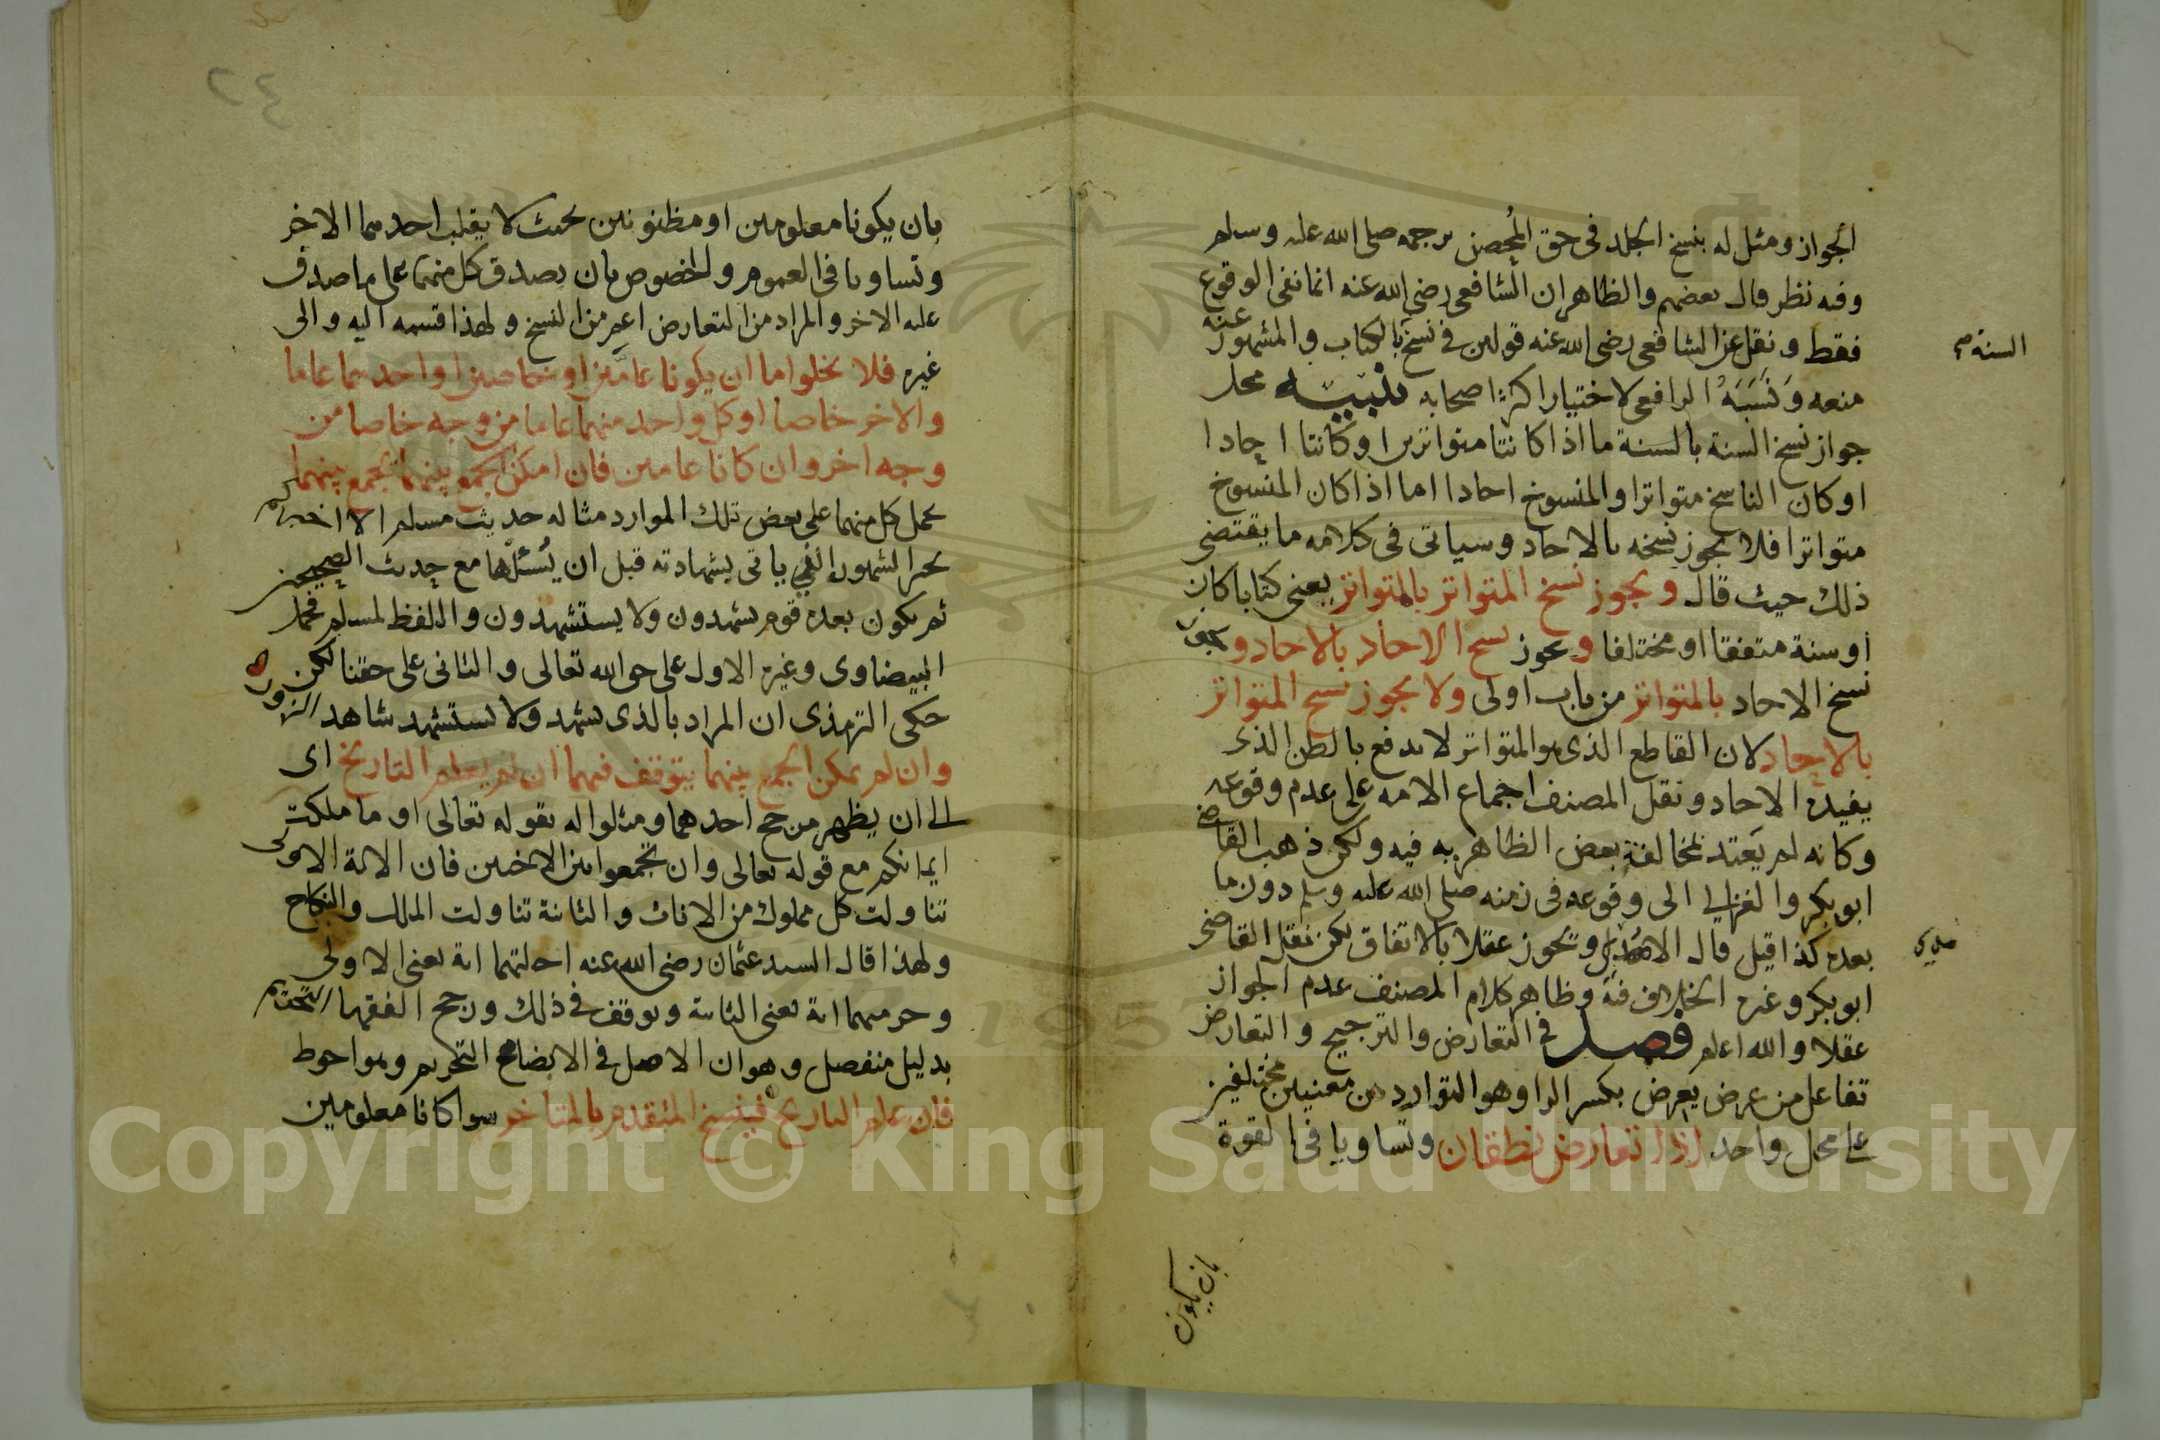 الجواز ومثل له بنسخ الجلد فى حق المُحصن برجمه صلى الله عليه وسلم
وفيه نظر قال بعضهم والظاهر ان الشافعى رضى الله عنه انما نفى الوقوع
فقط ونقل عن الشافعى رضى الله عنه قولين فى نسخ بالكتاب والمشهور عنه
السنة صح
منعه وَنَسَبَهُ الرافعى لاختيار اكثر اصحابه تنبيه محل
جواز نسخ السنة بالسنة ما اذا كانتا متواترين او كانتا احادا
او كان الناسخ متواترا والمنسوخ احادا اما اذا كان المنسوخ
متواترا فلا يجوز نسخه بالاحاد وسياتى فى كلامه ما يقتضى
ذلك حيث قال ويجوز نسخ المتواتر بالمتواتر يعنى كتابا كان
او سنة متفقا او مختلفا و يجوز نسخ الاحاد بالاحاد و يجوز
نسخ الاحاد بالمتواتر من باب اولى ولا يجوز نسخ المتواتر
بالاحاد لان القاطع الذى هو المتواتر لا يدفع بالظن الذى
يفيده الاحاد ونقل المصنف اجماع الامة على عدم وقوعه
وكانه لم يَعتد بمخالفة بعض الظاهرية فيه ولكن ذهب القاضى
ابو بكر والغزالى الى وقوعه فى زمنه صلى الله عليه وسلم دون ما
بعده كذا قيل قال و يجوز عقلا بالاتفاق لكن نقل القاضى
ابو بكر وغيره الخلاف فيه وظاهر كلام المصنف عدم الجواز
عقلا والله اعلم فصل فى التعارض والترجيح والتعارض
تفاعل من عرض يعرض بكسر الرا وهو التوارد من معنيين مختلفين
على محل واحد اذا تعارض نطقان وتساويا فى القوة
بان يكونا
٢٤
بان يكونا معلومين او مظنونين بحيث لا يغلب احدهما الاخر
وتساويا فى العموم والخصوص بان يصدق كل منهما على ما صدق
عليه الاخر والمراد من التعارض اعم من النسخ ولهذا قسمه اليه والى
غيره فلا يخلوا اما ان يكونا عامّين او خاصين او احدهما عاما
والاخر خاصا او كل واحد منهما عاما من وجه خاصا من
وجه اخر وان كانا عامين فان امكن الجمع بينهما يجمع بينهما
بحمل كل منهما على بعض تلك الموارد مثاله حديث مسلم الا اخبركم
بخير الشهود الذى ياتى بشهادته قبل ان يُسئلها مع حديث الصحيحين
ثم يكون بعده قوم يشهدون ولا يستشهدون واللفظ لمسلم فحمل
البيضاوى وغيره الاول على حق الله تعالى والثانى على حقنا لكن
حكى الترمذى ان المراد بالذى يشهد ولا يستشهد شاهد الزور
وان لم يمكن الجمع بينهما يتوقف فيهما ان لم يعلم التاريخ اى
الى ان يظهر مرجح احدهما ومثلوا له بقوله تعالى او ما ملكت
ايمانكم مع قوله تعالى وان تجمعوا بين الاختين فان الاية الاولى
تناولت كل مملوك من الاناث والثانية تناولت الملك والنكاح
ولهذا قال السيد عثمان رضى الله عنه احلتهما اية يعنى الاولى
وحرمتهما اية يعنى الثانية وتوقف فى ذلك ورجح الفقها التحريم
بدليل منفصل وهو ان الاصل فى الابضاع التحريم وهو احوط
فان علم التاريخ فينسخ المتقدم بالمتاخر سوا كانا معلومين
Copyright © King Saud University
1957